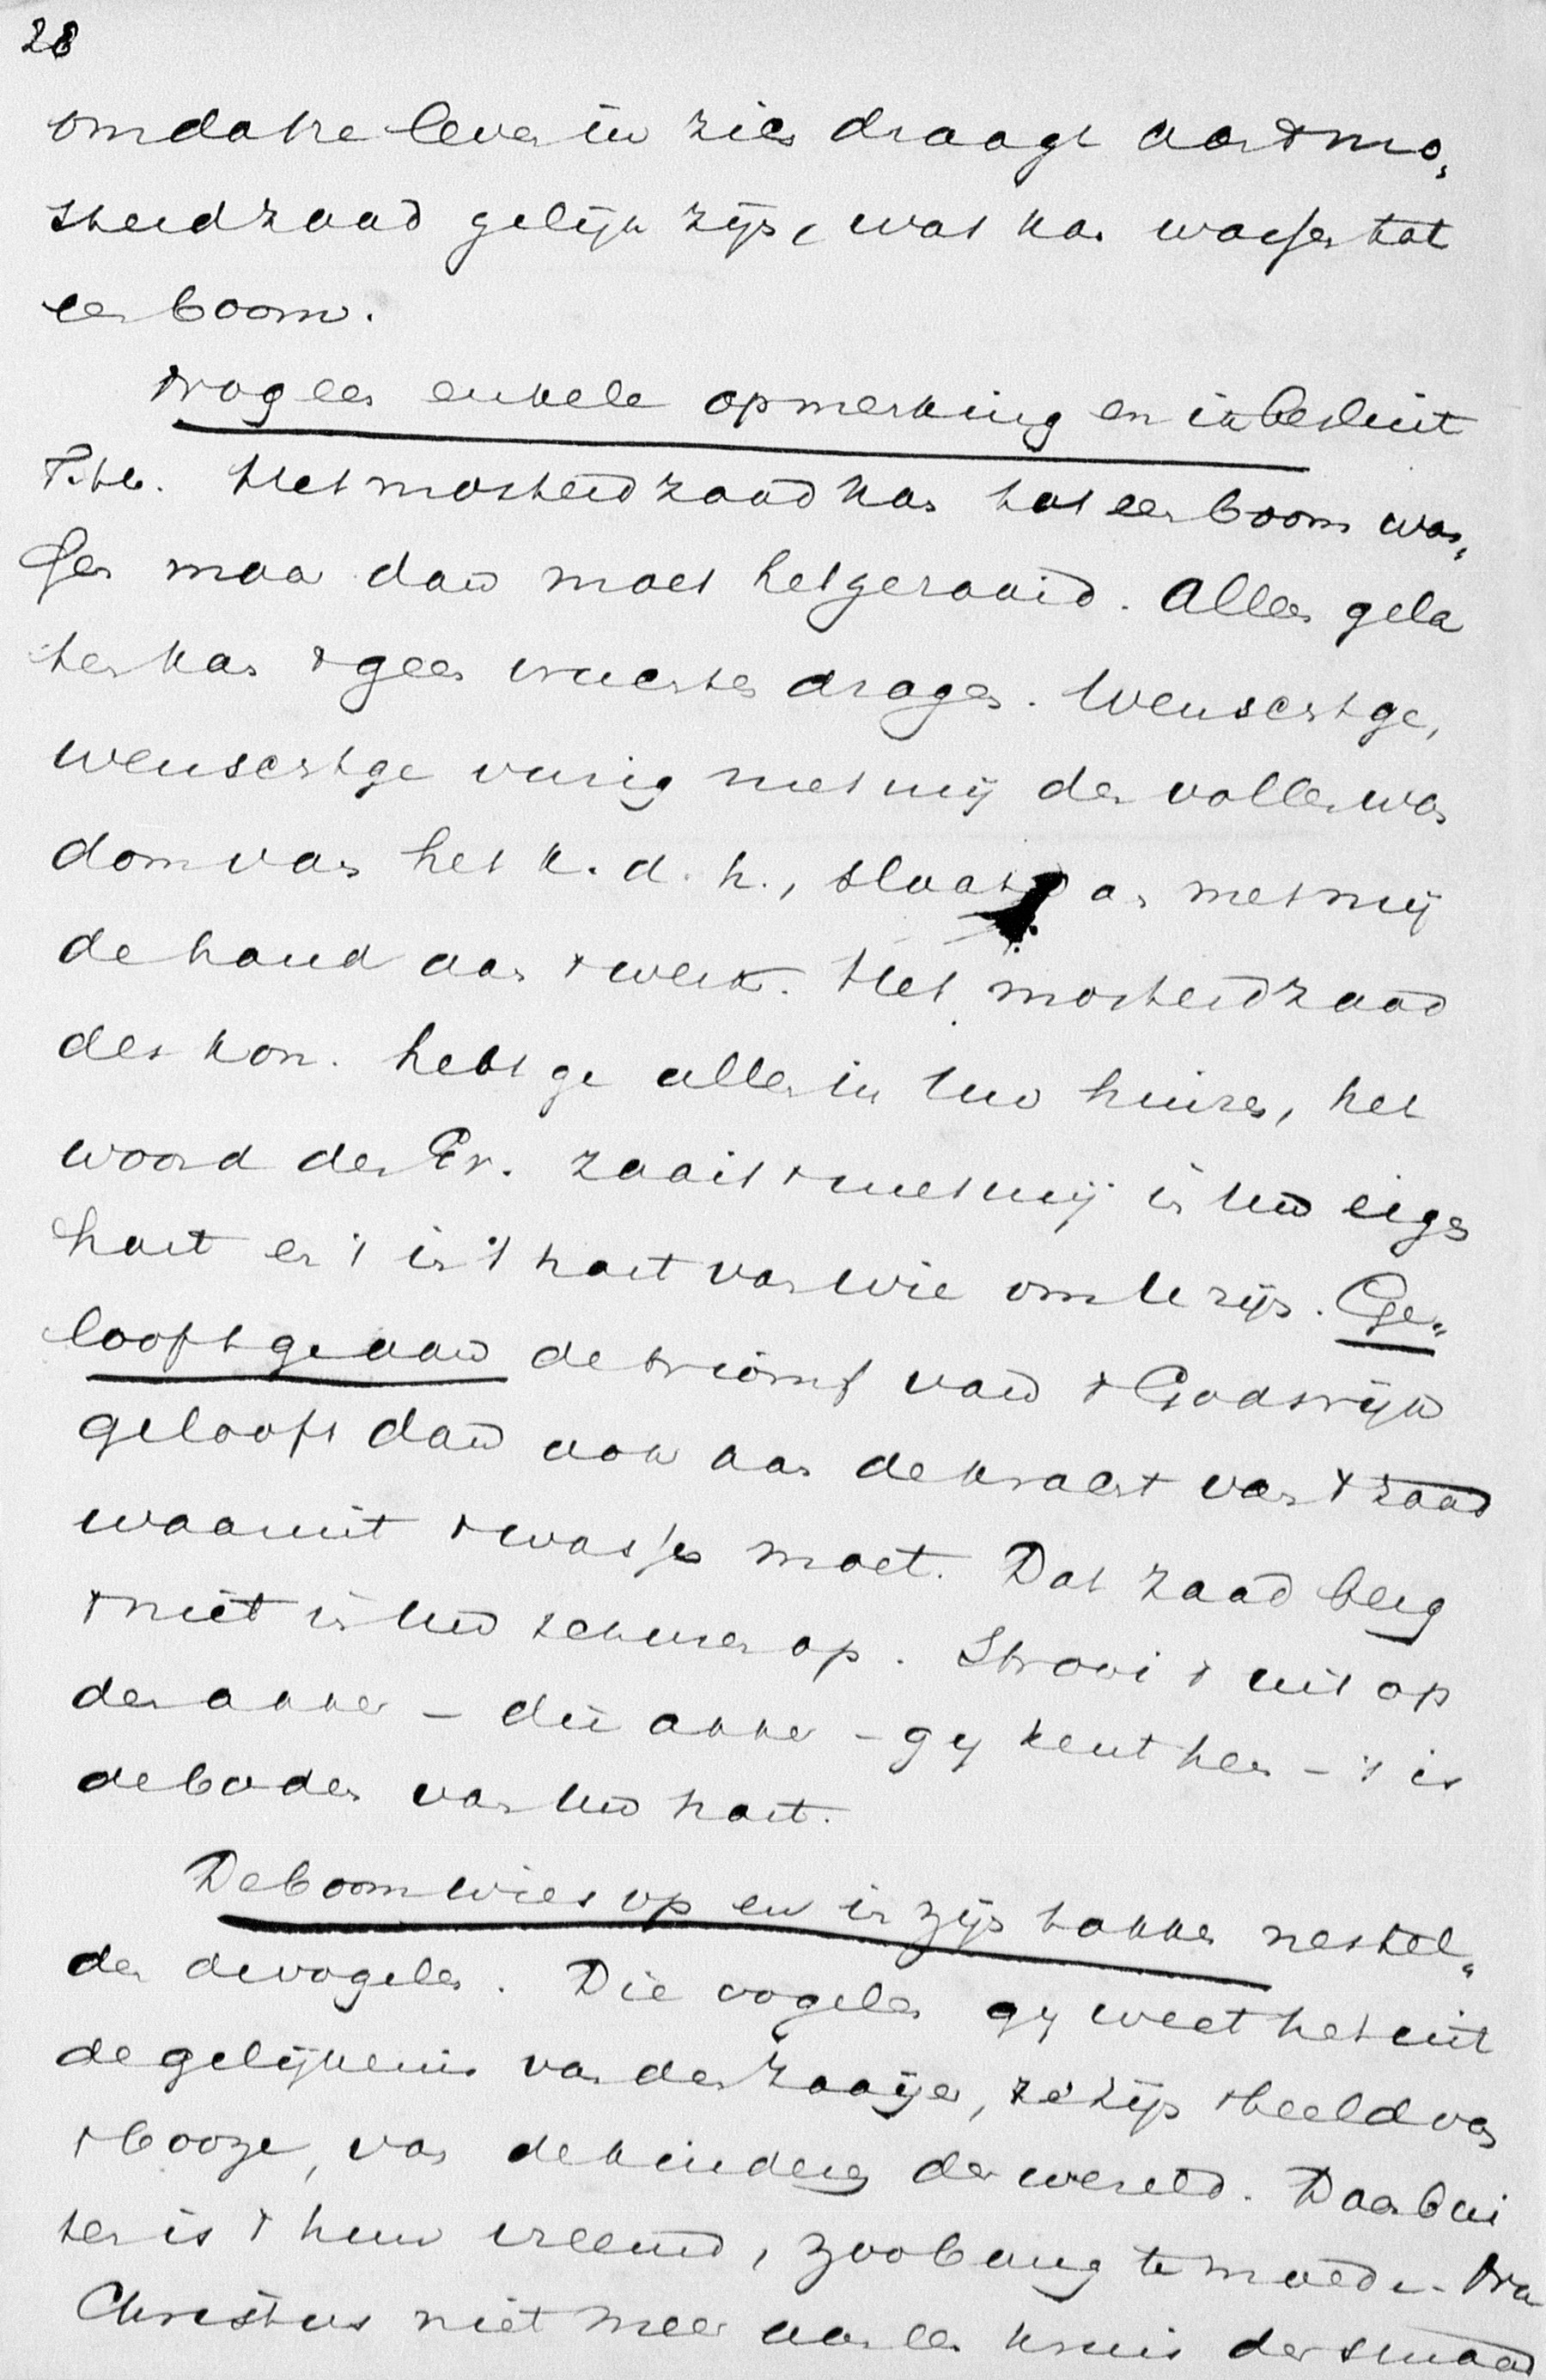 28
omdat ze leven in zich draagt aan 't mos,
sterdzaad gelijk zijn, wat kan wassen tot
een boom.
Nog een enkele opmerking en ik besluit
Het mosterdzaad kan tot een boom was,
sen maar dan moet het gezaaid. Alleen gela
ten kan 't geen vruchten dragen. Wenscht ge,
wenscht ge vurig met mij den vollen was
dom van het K. d. h., slaat dan met mij
de hand aan 't werk. Het mosterdzaad
des Kon. hebt ge allen in Uw huizen, het
woord des Ev. zaait 't met mij in Uw eigen
hart en 't in 't hart van wie om U zijn. Ge„
looft ge aan de triomf van 't Godsrijk
gelooft dan ook aan de kracht van 't zaad
waaruit 't wassen moet. Dat zaad berg
't niet in Uw schuren op. Strooi 't uit op
den akker – die akker – gij kent hem – 't is
de bodem van Uw hart.
De boom wies op en in zijn takken nestel„
den de vogelen. Die vogelen gij weet het uit
de gelijkenis van den zaaijer, ze zijn 't beeld van
't booze, van de kinderen der wereld. Daar bui
ten is 't hun vreemd, zoo bang te moede. Nu
Christus niet meer aan een kruis der smaad